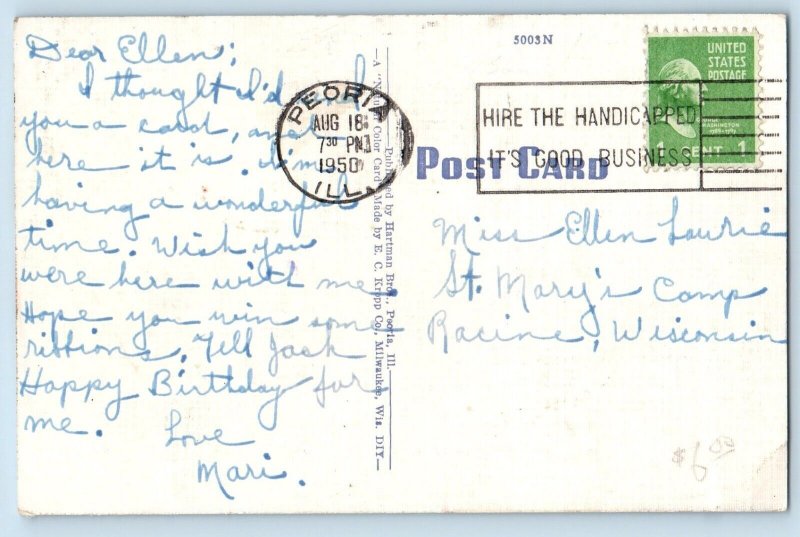 Dear Ellen;
I thought I'd send
you a card, and
here it is. I'm
having a wonderful
time. Wish you
were here with me
Hope you win some
ribbions. Tell Jack
Happy Birthday for
me.
Love
Mari.
PEORIA
AUG 18
7 30 PM
1950
ILL.
—Published by Hartman Bros., Peoria, Ill.—
Color Card Made by E. C. Kropp Co., Milwaukee, Wis. DIY—
5003N
POST CARD
HIRE THE HANDICAPPED
IT'S GOOD BUSINESS
UNITED
STATES
POSTAGE
WASHINGTON
1 CENT 1
Miss Ellen Laurie
St. Mary's Camp
Racine, Wisconsin
$6.00